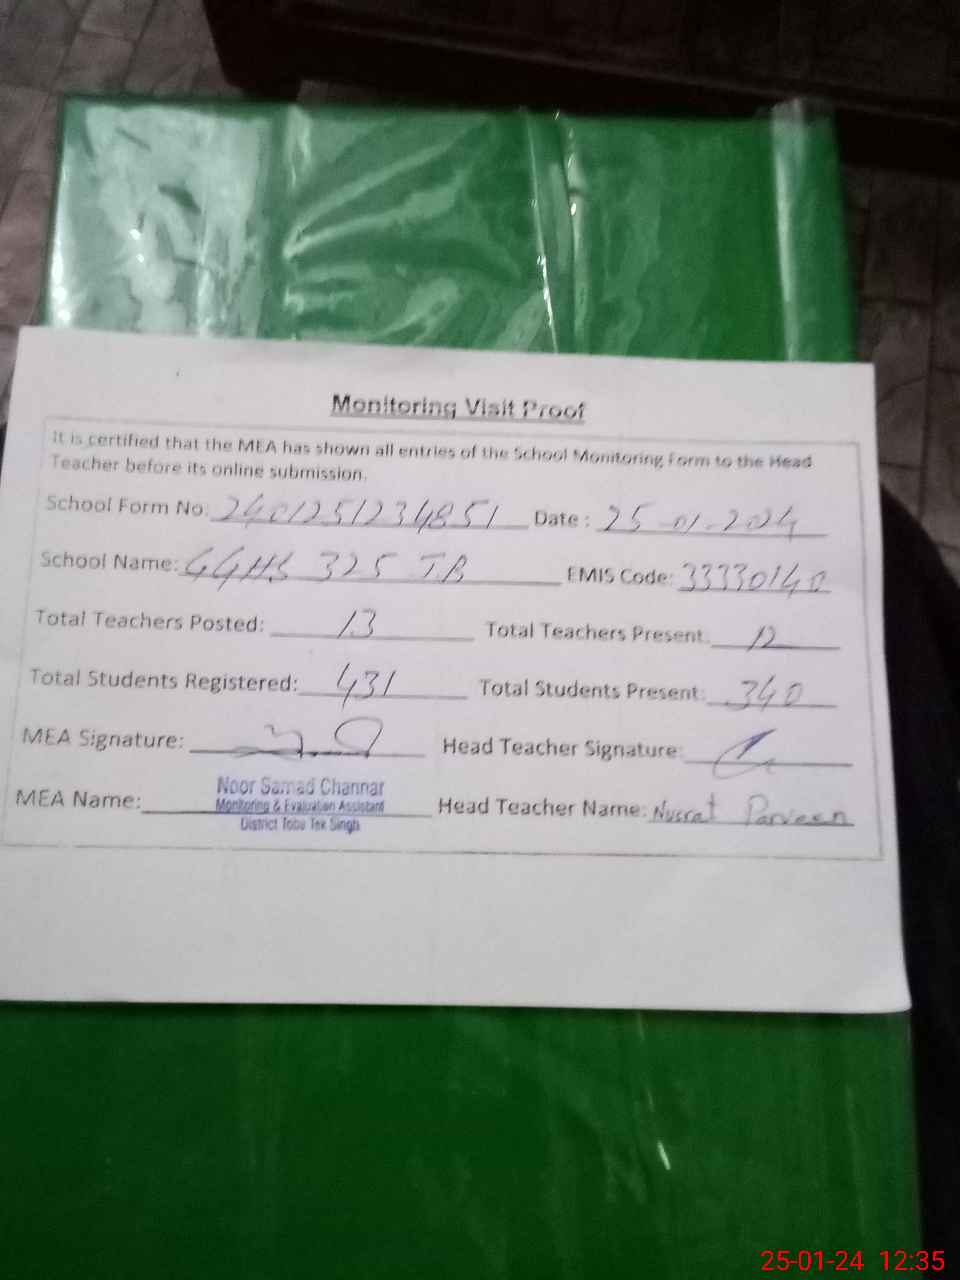 Monitoring Visit Proof
It is certified that the MEA has shown all entries of the School Monitoring Form to the Head
Teacher before its online submission.
School Form No: 2401251234851 Date : 25-01-2024
School Name: GGHS 325 JB EMIS Code: 33330140
Total Teachers Posted: 13 Total Teachers Present: 12
Total Students Registered: 431 Total Students Present: 340
MEA Signature: Head Teacher Signature:
MEA Name: Noor Samad Channar Head Teacher Name: Nusrat Parveen
Monitoring & Evaluation Assistant
District Toba Tek Singh
25-01-24 12:35